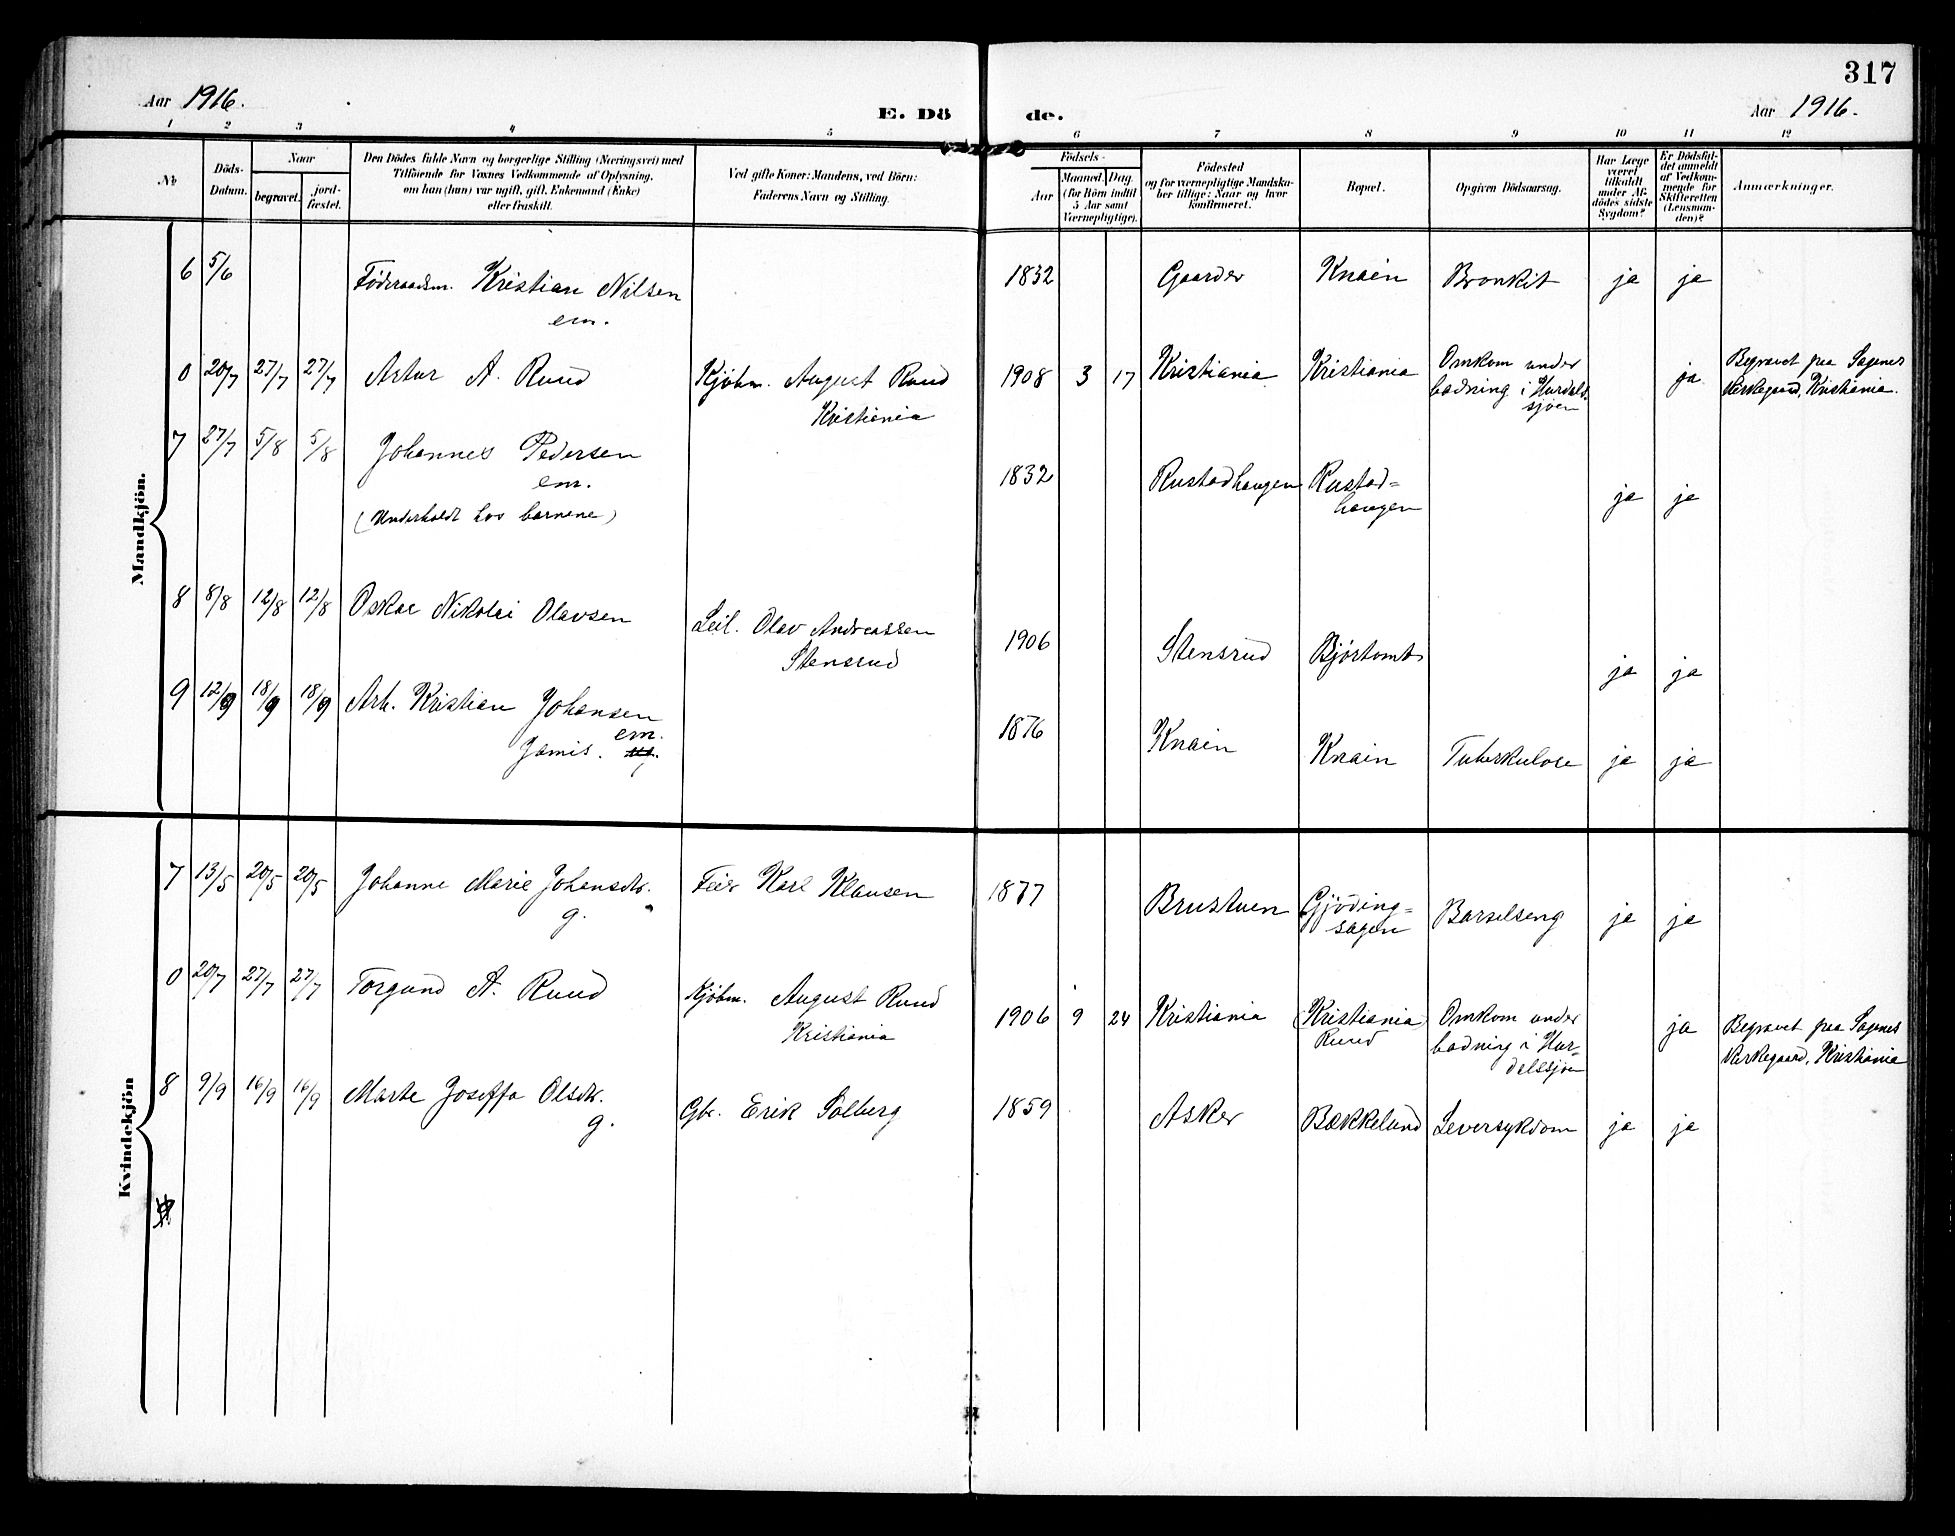 317
Aar 1916.
E. Dö
de.
Aar 1916.
1 2 3 4 5 6 7 8 9 10 11 12
No.
Döds-
Datum.
Naar
begravet.
jord-
fæstet.
Den Dödes fulde Navn og borgerlige Stilling (Næringsvei) med
Tilföiende för Voxnes Vedkommende af Oplysning,
om han (hun) var ugift, gift, Enkemand (Enke)
eller fraskilt.
Ved gifte Koner: Mandens, ved Börn:
Faderens Navn og Stilling.
Födsels-
Aar
Maaned. Dag.
(for Börn indtil
5 Aar samt
Værnepligtige).
Födested
og for værnepligtige Mandska-
ber tillige: Naar og hvor
konfirmeret.
Bopæl.
Opgiven Dödsaarsag.
Har Læge
været
tilkaldt
under Af-
dödes sidste
Sygdom?
Er Dödsfal-
det anmeldt
af Vedkom-
mende for
Skifteretten
(Lensman-
den)?
Anmærkninger.
Mandkjön.
6 5/6 Föderaadsm. Kristian Nilsen 1832 Gaarder Knain Bronkit ja ja
em.
0 20/7 27/7 27/7 Artur A. Ruud Kjöbm. August Ruud 1908 3 17 Kristiania Kristiania Omkom under ja Begravet paa Sagenes
Kristiania badning i Hurdals- Kirkegaard, Kristiania.
sjöen
7 27/7 5/8 5/8 Johannes Pedersen 1832 Rustadhaugen Rustad= ja ja
em. haugen
(Underholdt hos barnene)
8 8/8 12/8 12/8 Oskar Nikolai Olavsen Leil. Olav Andreassen 1906 Stensrud Bjørtomt ja ja
Stensrud
9 12/9 18/9 18/9 Arb. Kristian Johansen 1876 Knain Knain Tuberkulose ja ja
em.
Jamis.
Kvindekjön
7 13/5 20/5 20/5 Johanne Marie Johansdtr. Feier Karl Klausen 1877 Brustuen Gjöding= Barselseng ja ja
g. sagen
0 20/7 27/7 27/7 Torgund A. Ruud Kjöbm. August Ruud 1906 9 24 Kristiania (Kristiania) Omkom under ja Begravet paa Sagenes
Kristiania Ruud badning i Hur= Kirkegaard, Kristiania
dalssjöen
8 9/9 16/9 16/9 Marte Joseffa Olsdtr. Gbr. Erik Solberg 1859 Asker Bækkelund Leversykdom ja ja
g.